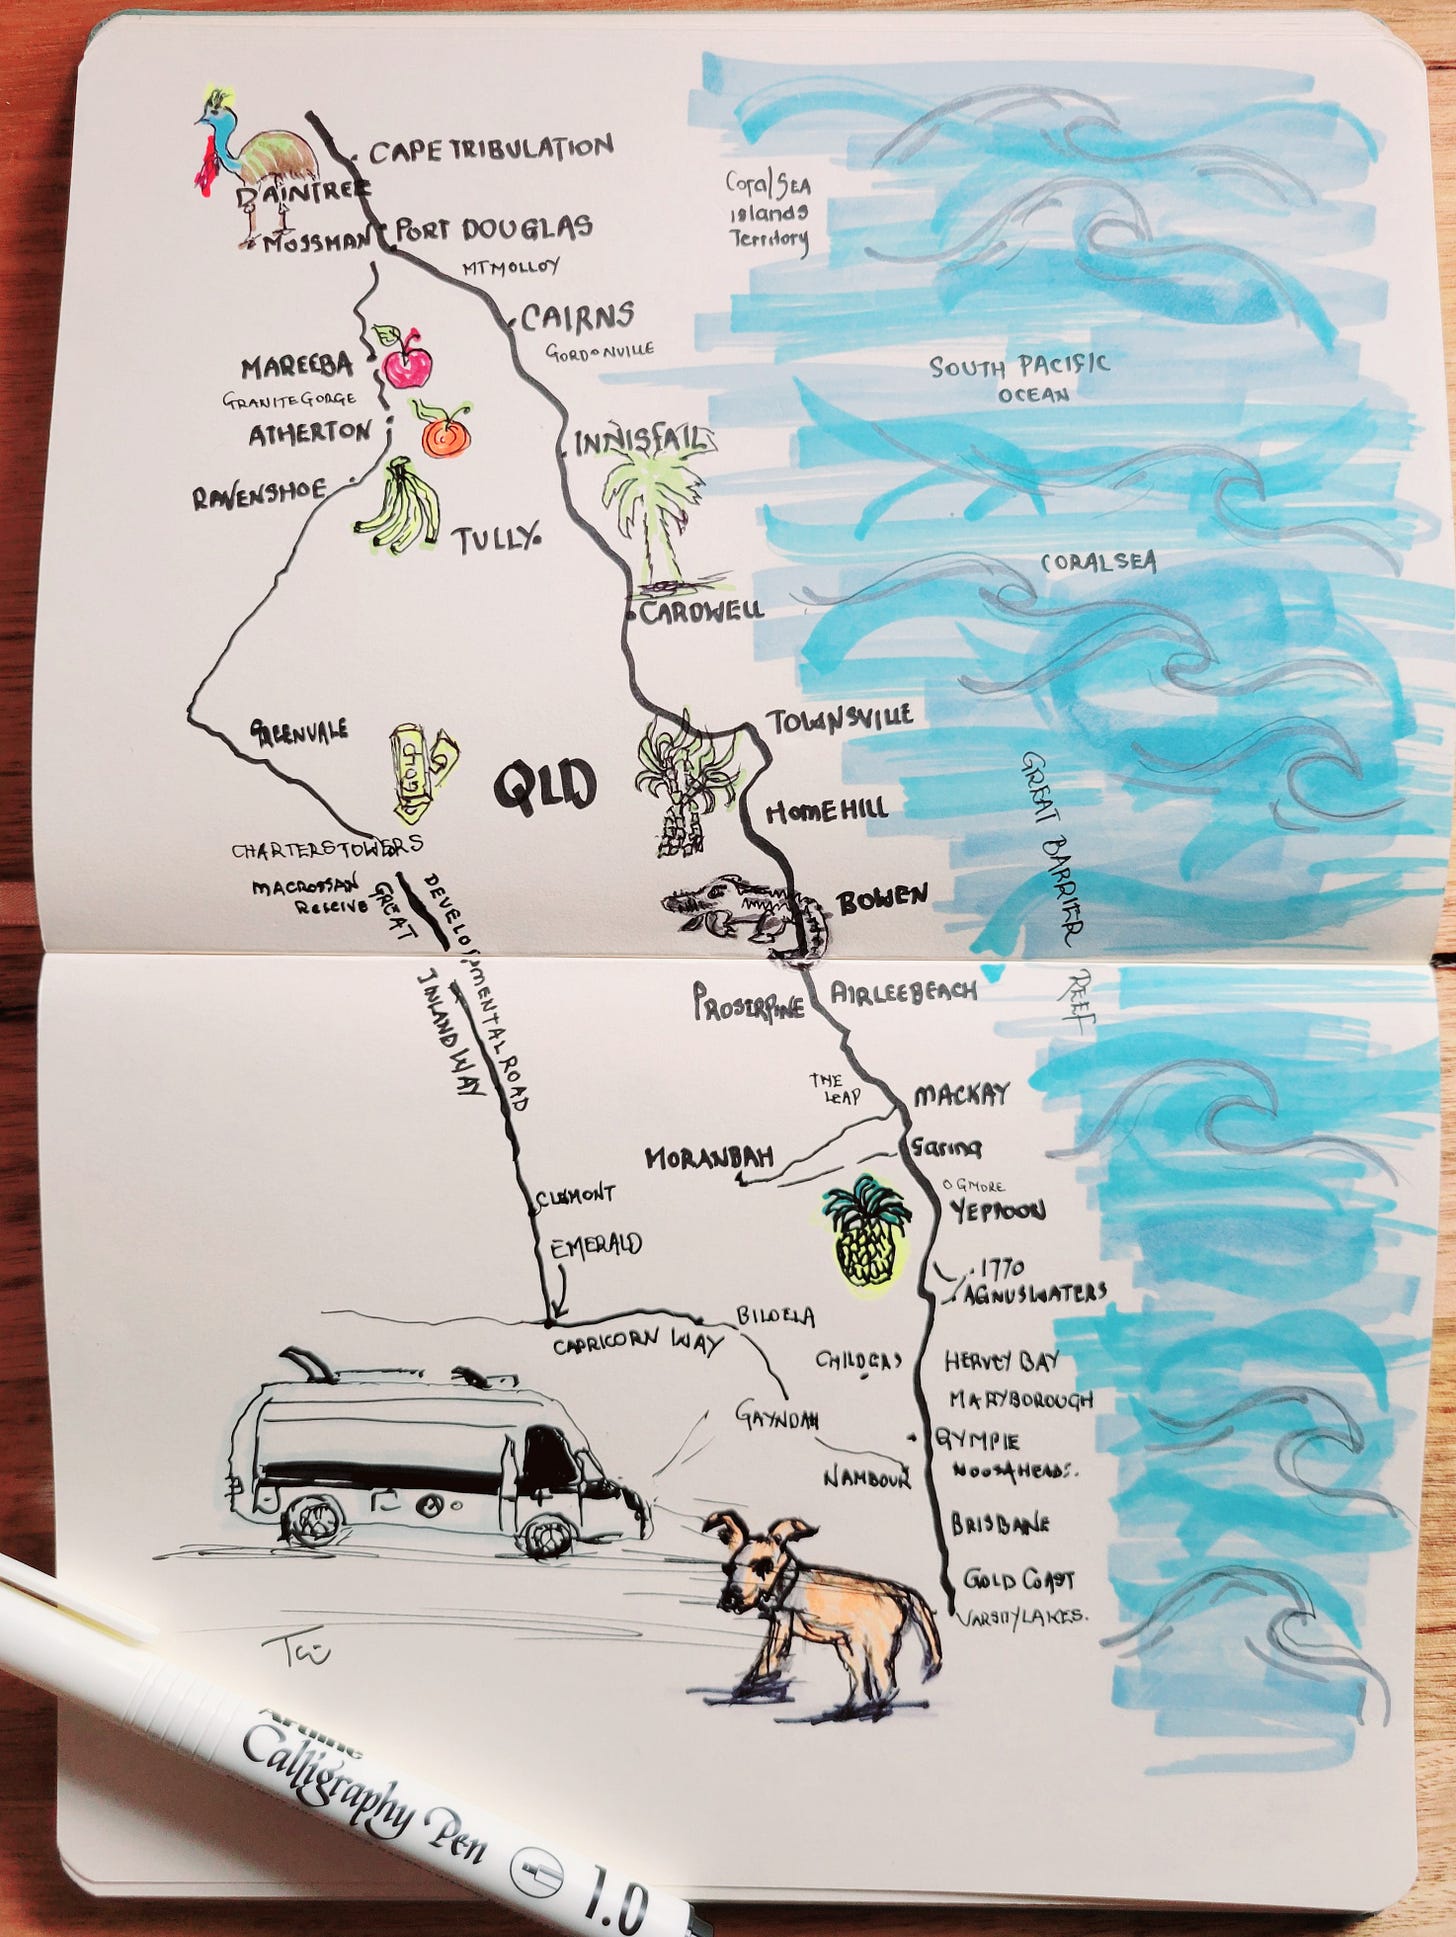 CAPE TRIBULATION
DAINTREE
MOSSMAN
PORT DOUGLAS
MT MOLLOY
Coral SEA
islands
Territory
CAIRNS
GORDONVILLE
MAREEBA
GRANITE GORGE
ATHERTON
SOUTH PACIFIC
OCEAN
INNISFAIL
RAVENSHOE
TULLY.
CORAL SEA
CARDWELL
GREENVALE
TOWNSVILLE
QLD
HOME HILL
GREAT BARRIER
REEF
CHARTERS TOWERS
MACROSSAN
GREAT
INLAND WAY
DEVELOPMENTAL ROAD
BOWEN
PROSERPINE
AIRLEE BEACH
THE
LEAP
MACKAY
MORANBAH
Sarina
OGMORE
YEPPOON
CLEMONT
EMERALD
1770
AGNUS WATERS
CAPRICORN WAY
BILOELA
CHILDERS
HERVEY BAY
MARYBOROUGH
GAYNDAH
GYMPIE
NAMBOUR
NOOSA HEADS.
BRISBANE
GOLD COAST
VARSITY LAKES.
Artline
Calligraphy Pen
1.0